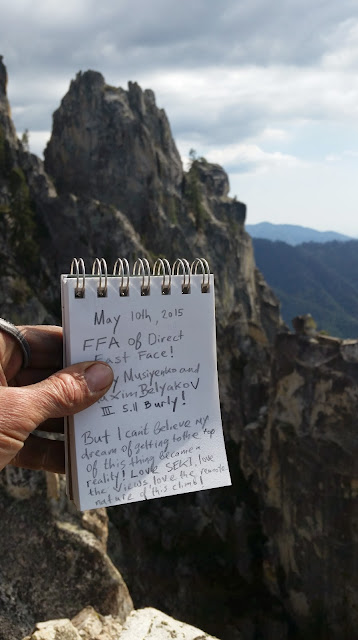 May 10th, 2015
FFA of Direct
East Face!
y Musiyenko and
axim Belyakov
III 5.11 Burly!
But I can't believe my
dream of getting to the top
of this thing became a
reality! Love SEKI, love
the views, love the remote
nature of this climb!